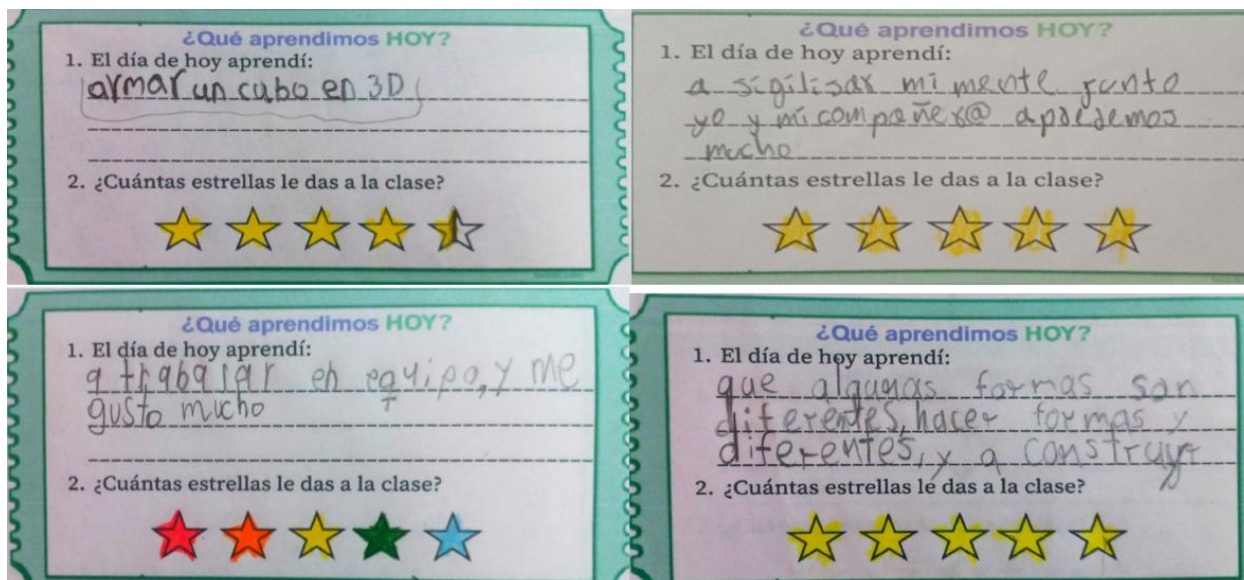 ¿Qué aprendimos HOY?
1. El día de hoy aprendí:
armar un cubo en 3D
2. ¿Cuántas estrellas le das a la clase?
¿Qué aprendimos HOY?
1. El día de hoy aprendí:
a sigilisar mi mente junto
yo y mi compañer@ apdedemos
mucho
2. ¿Cuántas estrellas le das a la clase?
¿Qué aprendimos HOY?
1. El día de hoy aprendí:
a trabajar en equipo, y me
gusto mucho
2. ¿Cuántas estrellas le das a la clase?
¿Qué aprendimos HOY?
1. El día de hoy aprendí:
que algunas formas son
diferentes, hacer formas y
diferentes, y a construyr
2. ¿Cuántas estrellas le das a la clase?